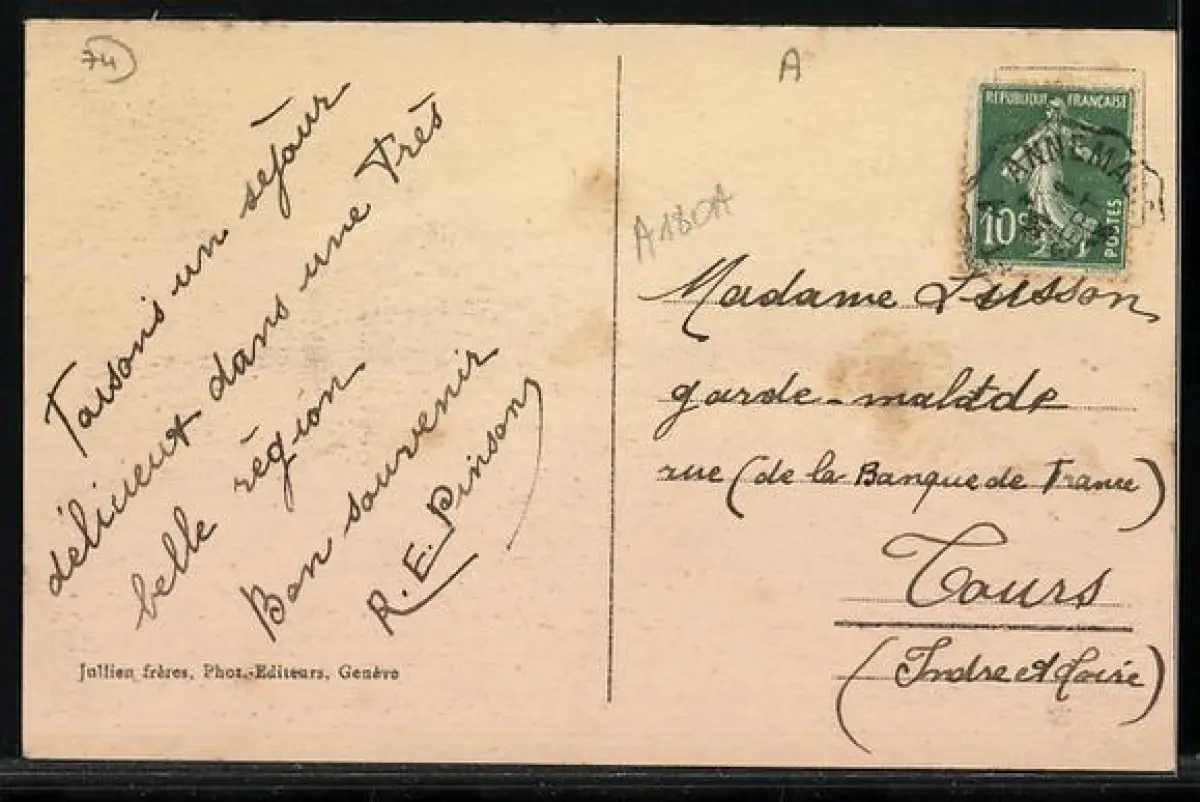 74
A
RÉPUBLIQUE FRANÇAISE
10c
POSTES
ANNEMA
A180A
Faisons un séjour
délicieux dans une très
belle région
Bon souvenir
R. E. Pinson
Madame Lusson
garde-malade
rue (de la Banque de France)
Tours
(Indre et Loire)
Jullien frères, Phot.-Editeurs, Genève